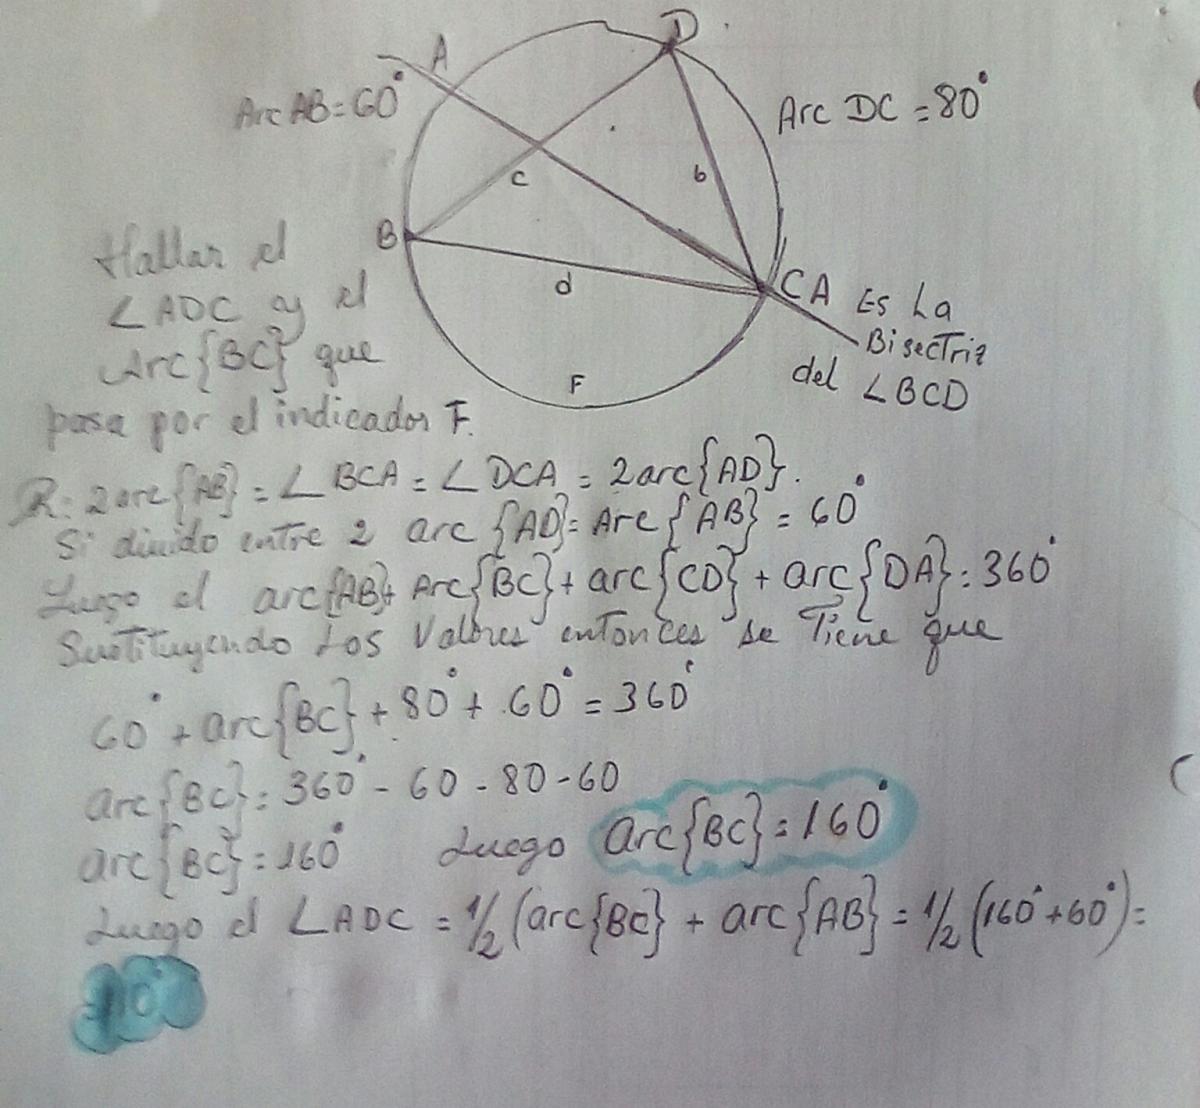 D
A
Arc AB = 60°
Arc DC = 80°
c
b
B
d
C A Es La
Bisectriz
del ∠BCD
F
Hallar el
∠ADC y el
Arc{BC} que
pasa por el indicador F.
R: 2 arc{AB} = ∠BCA = ∠DCA = 2 arc{AD}.
Si divido entre 2 arc {AD} = Arc {AB} = 60°
Luego el arc{AB} + Arc{BC} + arc{CD} + arc{DA} = 360°
Sustituyendo Los Valores entonces se Tiene que
60° + arc{BC} + 80° + 60° = 360°
arc{BC} = 360° - 60 - 80 - 60
arc{BC} = 160° Luego arc{BC} = 160°
Luego el ∠ADC = 1/2 (arc{BC} + arc{AB} = 1/2 (160° + 60°) =